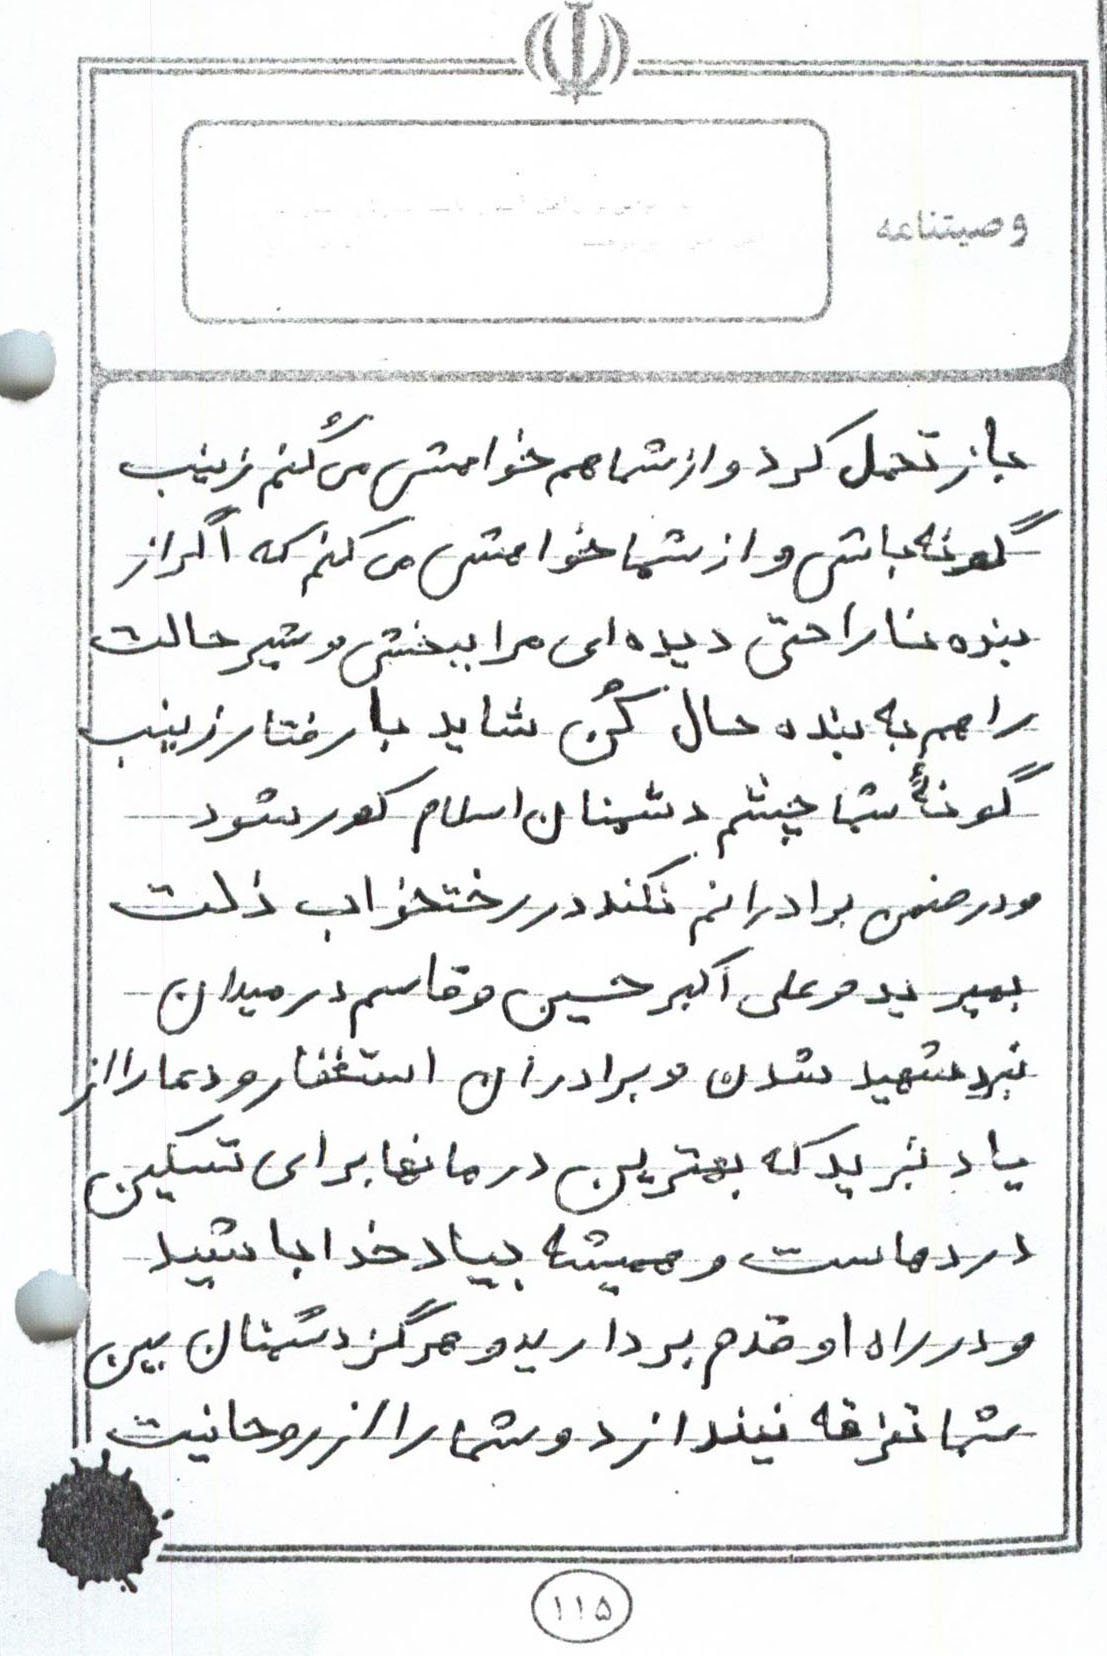 وصیتنامه
باز تحمل کرد و از شما هم خواهش می کنم زینب
گونه باشی و از شما خواهش می کنم که اگر از
بنده ناراحتی دیده ای مرا ببخشی و شیر حالت
را هم به بنده حال کُن شاید با رفتار زینب
گونهٔ شما چشم دشمنان اسلام کور بشود
و در ضمن برادرانم نکند در رختخواب ذلت
بمیرید و علی اکبر حسین و قاسم در میدان
نبرد شهید شدن و برادران استغفار و دعا را از
یاد نبرید که بهترین درمانها برای تسکین
دردهاست و همیشه بیاد خدا باشید
و در راه او قدم بردارید و هرگز دشمنان بین
شما تفرقه نیندازد و شما را از روحانیت
۱۱۵